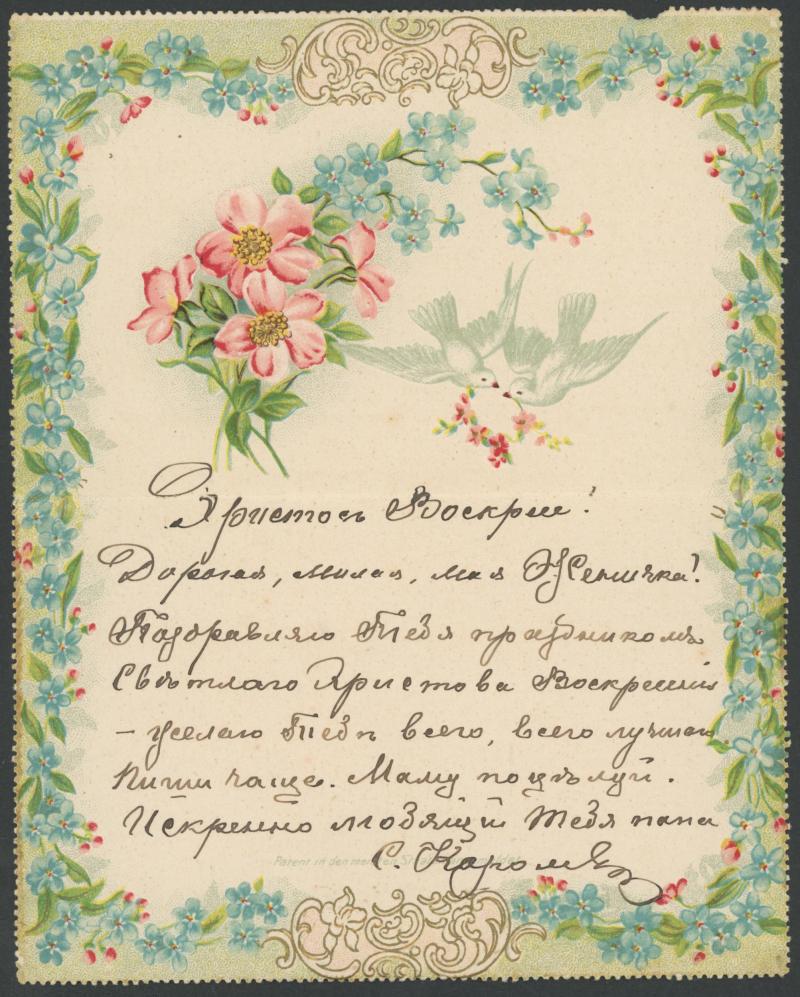 Христосъ Воскресе!
Дорогая, милая, моя Женичка!
Поздравляю Тебя праздникомъ
Свѣтлаго Христова Воскресенія
– желаю Тебѣ всего, всего лучшаго
Пиши чаще. Маму поцѣлуй.
Искренно любящій Тебя папа
Patent in den meisten
С.